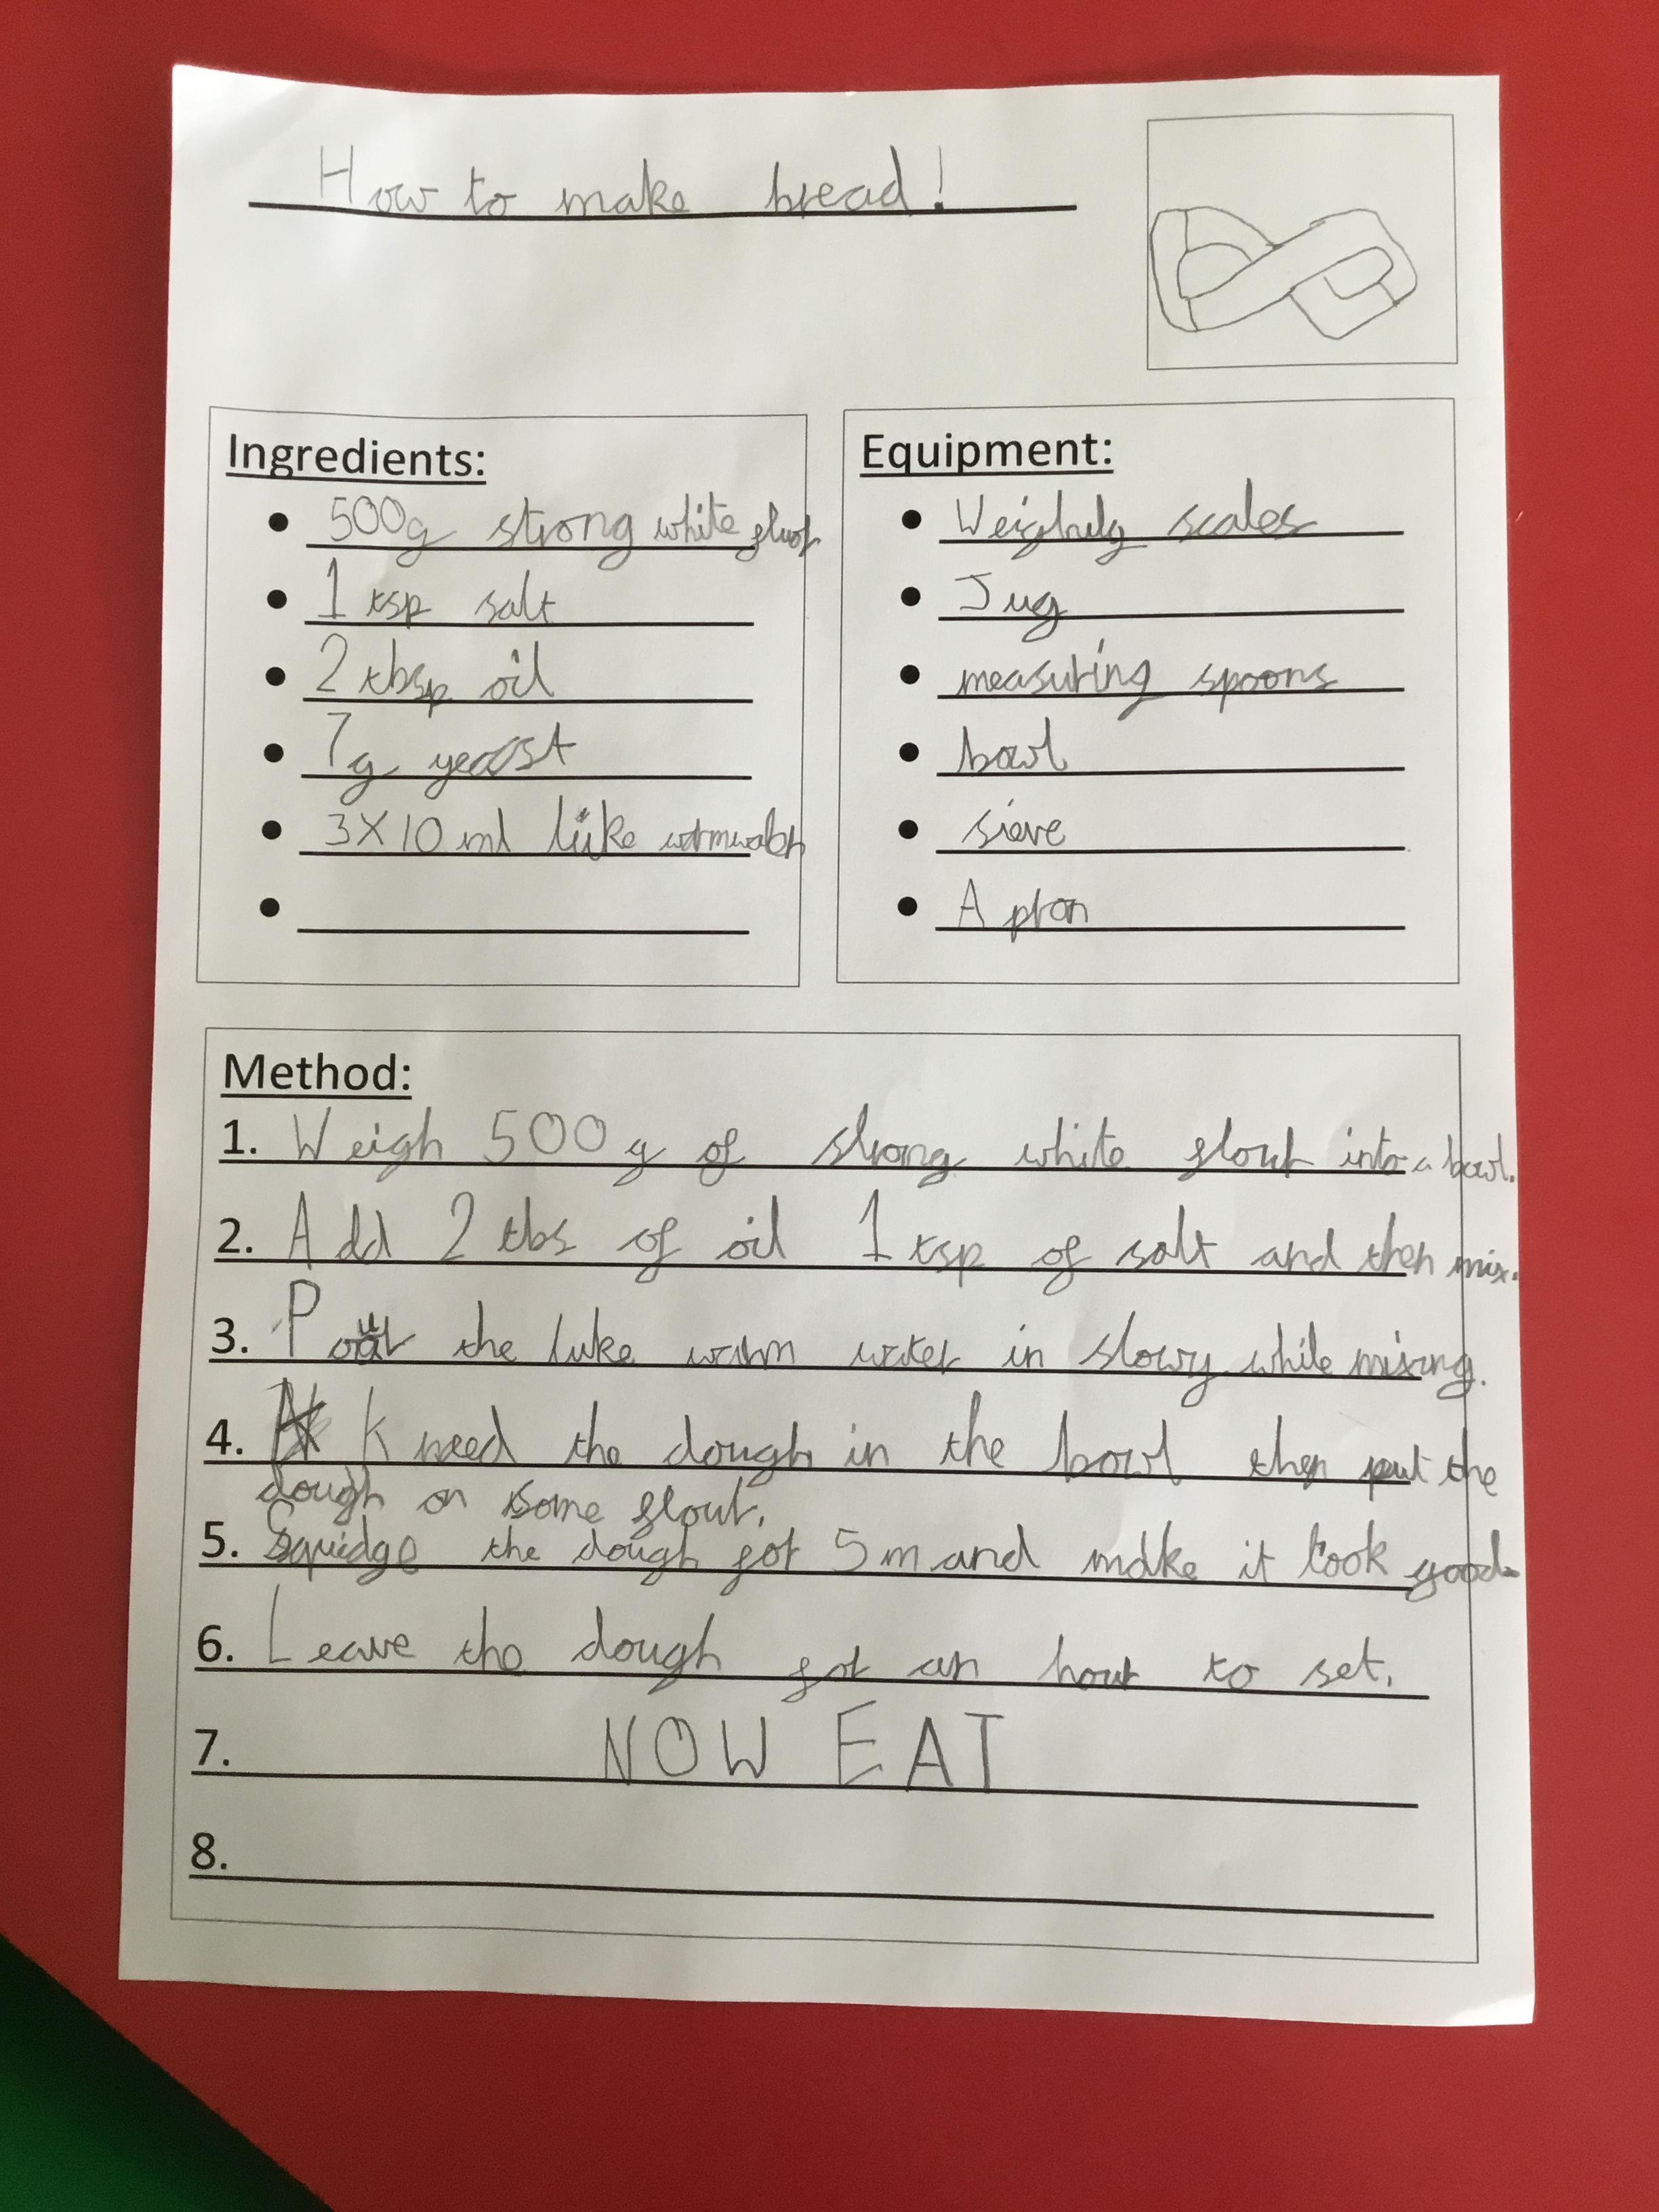 How to make bread!
Ingredients:
500g strong white fluor
1 tsp salt
2 tbsp oil
7g yeast
3X10 ml luke warm water
Equipment:
Weighing scales
Jug
measuring spoons
bowl
sieve
Apron
Method:
1. Weigh 500g of strong white flour into a bowl.
2. Add 2 tbs of oil 1 tsp of salt and then mix.
3. Pour the luke warm water in slowy while mixing.
4. Kneed the dough in the bowl then put the
dough on some flour.
5. Squidge the dough for 5m and make it look good.
6. Leave the dough for an hour to set.
7. NOW EAT
8.